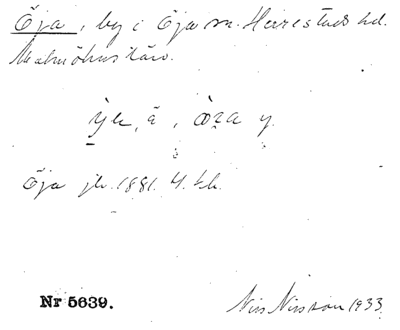 Öja, by i Öja sn. Herrestads hd.
Malmöhus län.
Öja jb. 1881. 4.
Nr 5639.
Nils Nilsson 1933.